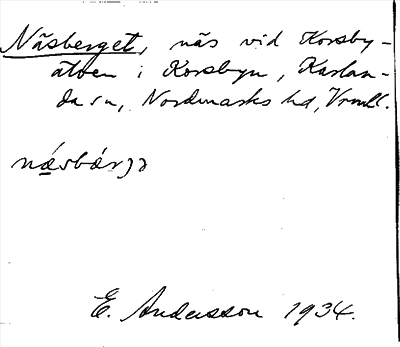 Näsberget, näs vid Korsby-
älven i Korsbyn, Karlan-
da sn, Nordmarks hd, Vrml.
näsbärjə
E. Andersson 1934.